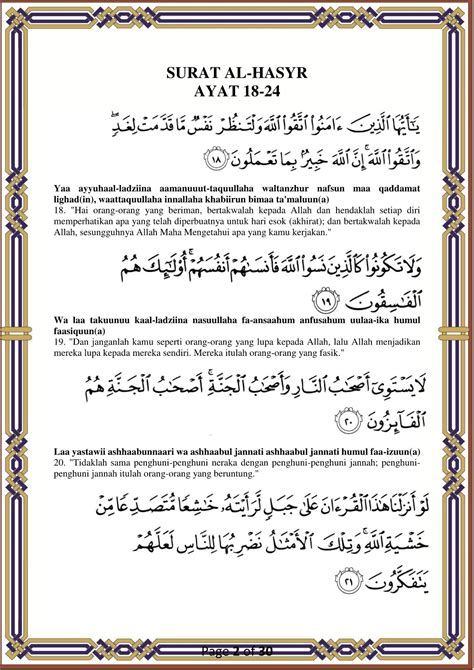 SURAT AL-HASYR
AYAT 18-24
يَـٰٓأَيُّهَا ٱلَّذِينَ ءَامَنُوا۟ ٱتَّقُوا۟ ٱللَّهَ وَلْتَنظُرْ نَفْسٌ مَّا قَدَّمَتْ لِغَدٍ ۖ
وَٱتَّقُوا۟ ٱللَّهَ ۚ إِنَّ ٱللَّهَ خَبِيرٌۢ بِمَا تَعْمَلُونَ ﴿١٨﴾
Yaa ayyuhaal-ladziina aamanuuut-taquullaha waltanzhur nafsun maa qaddamat
lighad(in), waattaquullaha innallaha khabiirun bimaa ta'maluun(a)
18. "Hai orang-orang yang beriman, bertakwalah kepada Allah dan hendaklah setiap diri
memperhatikan apa yang telah diperbuatnya untuk hari esok (akhirat); dan bertakwalah kepada
Allah, sesungguhnya Allah Maha Mengetahui apa yang kamu kerjakan."
وَلَا تَكُونُوا۟ كَٱلَّذِينَ نَسُوا۟ ٱللَّهَ فَأَنسَىٰهُمْ أَنفُسَهُمْ ۚ أُو۟لَـٰٓئِكَ هُمُ
ٱلْفَـٰسِقُونَ ﴿١٩﴾
Wa laa takuunuu kaal-ladziina nasuullaha fa-ansaahum anfusahum uulaa-ika humul
faasiquun(a)
19. "Dan janganlah kamu seperti orang-orang yang lupa kepada Allah, lalu Allah menjadikan
mereka lupa kepada mereka sendiri. Mereka itulah orang-orang yang fasik."
لَا يَسْتَوِىٓ أَصْحَـٰبُ ٱلنَّارِ وَأَصْحَـٰبُ ٱلْجَنَّةِ ۚ أَصْحَـٰبُ ٱلْجَنَّةِ هُمُ
ٱلْفَآئِزُونَ ﴿٢٠﴾
Laa yastawii ashhaabunnaari wa ashhaabul jannati ashhaabul jannati humul faa-izuun(a)
20. "Tidaklah sama penghuni-penghuni neraka dengan penghuni-penghuni jannah; penghuni-
penghuni jannah itulah orang-orang yang beruntung."
لَوْ أَنزَلْنَا هَـٰذَا ٱلْقُرْءَانَ عَلَىٰ جَبَلٍ لَّرَأَيْتَهُۥ خَـٰشِعًا مُّتَصَدِّعًا مِّنْ
خَشْيَةِ ٱللَّهِ ۚ وَتِلْكَ ٱلْأَمْثَـٰلُ نَضْرِبُهَا لِلنَّاسِ لَعَلَّهُمْ
يَتَفَكَّرُونَ ﴿٢١﴾
Page 2 of 30